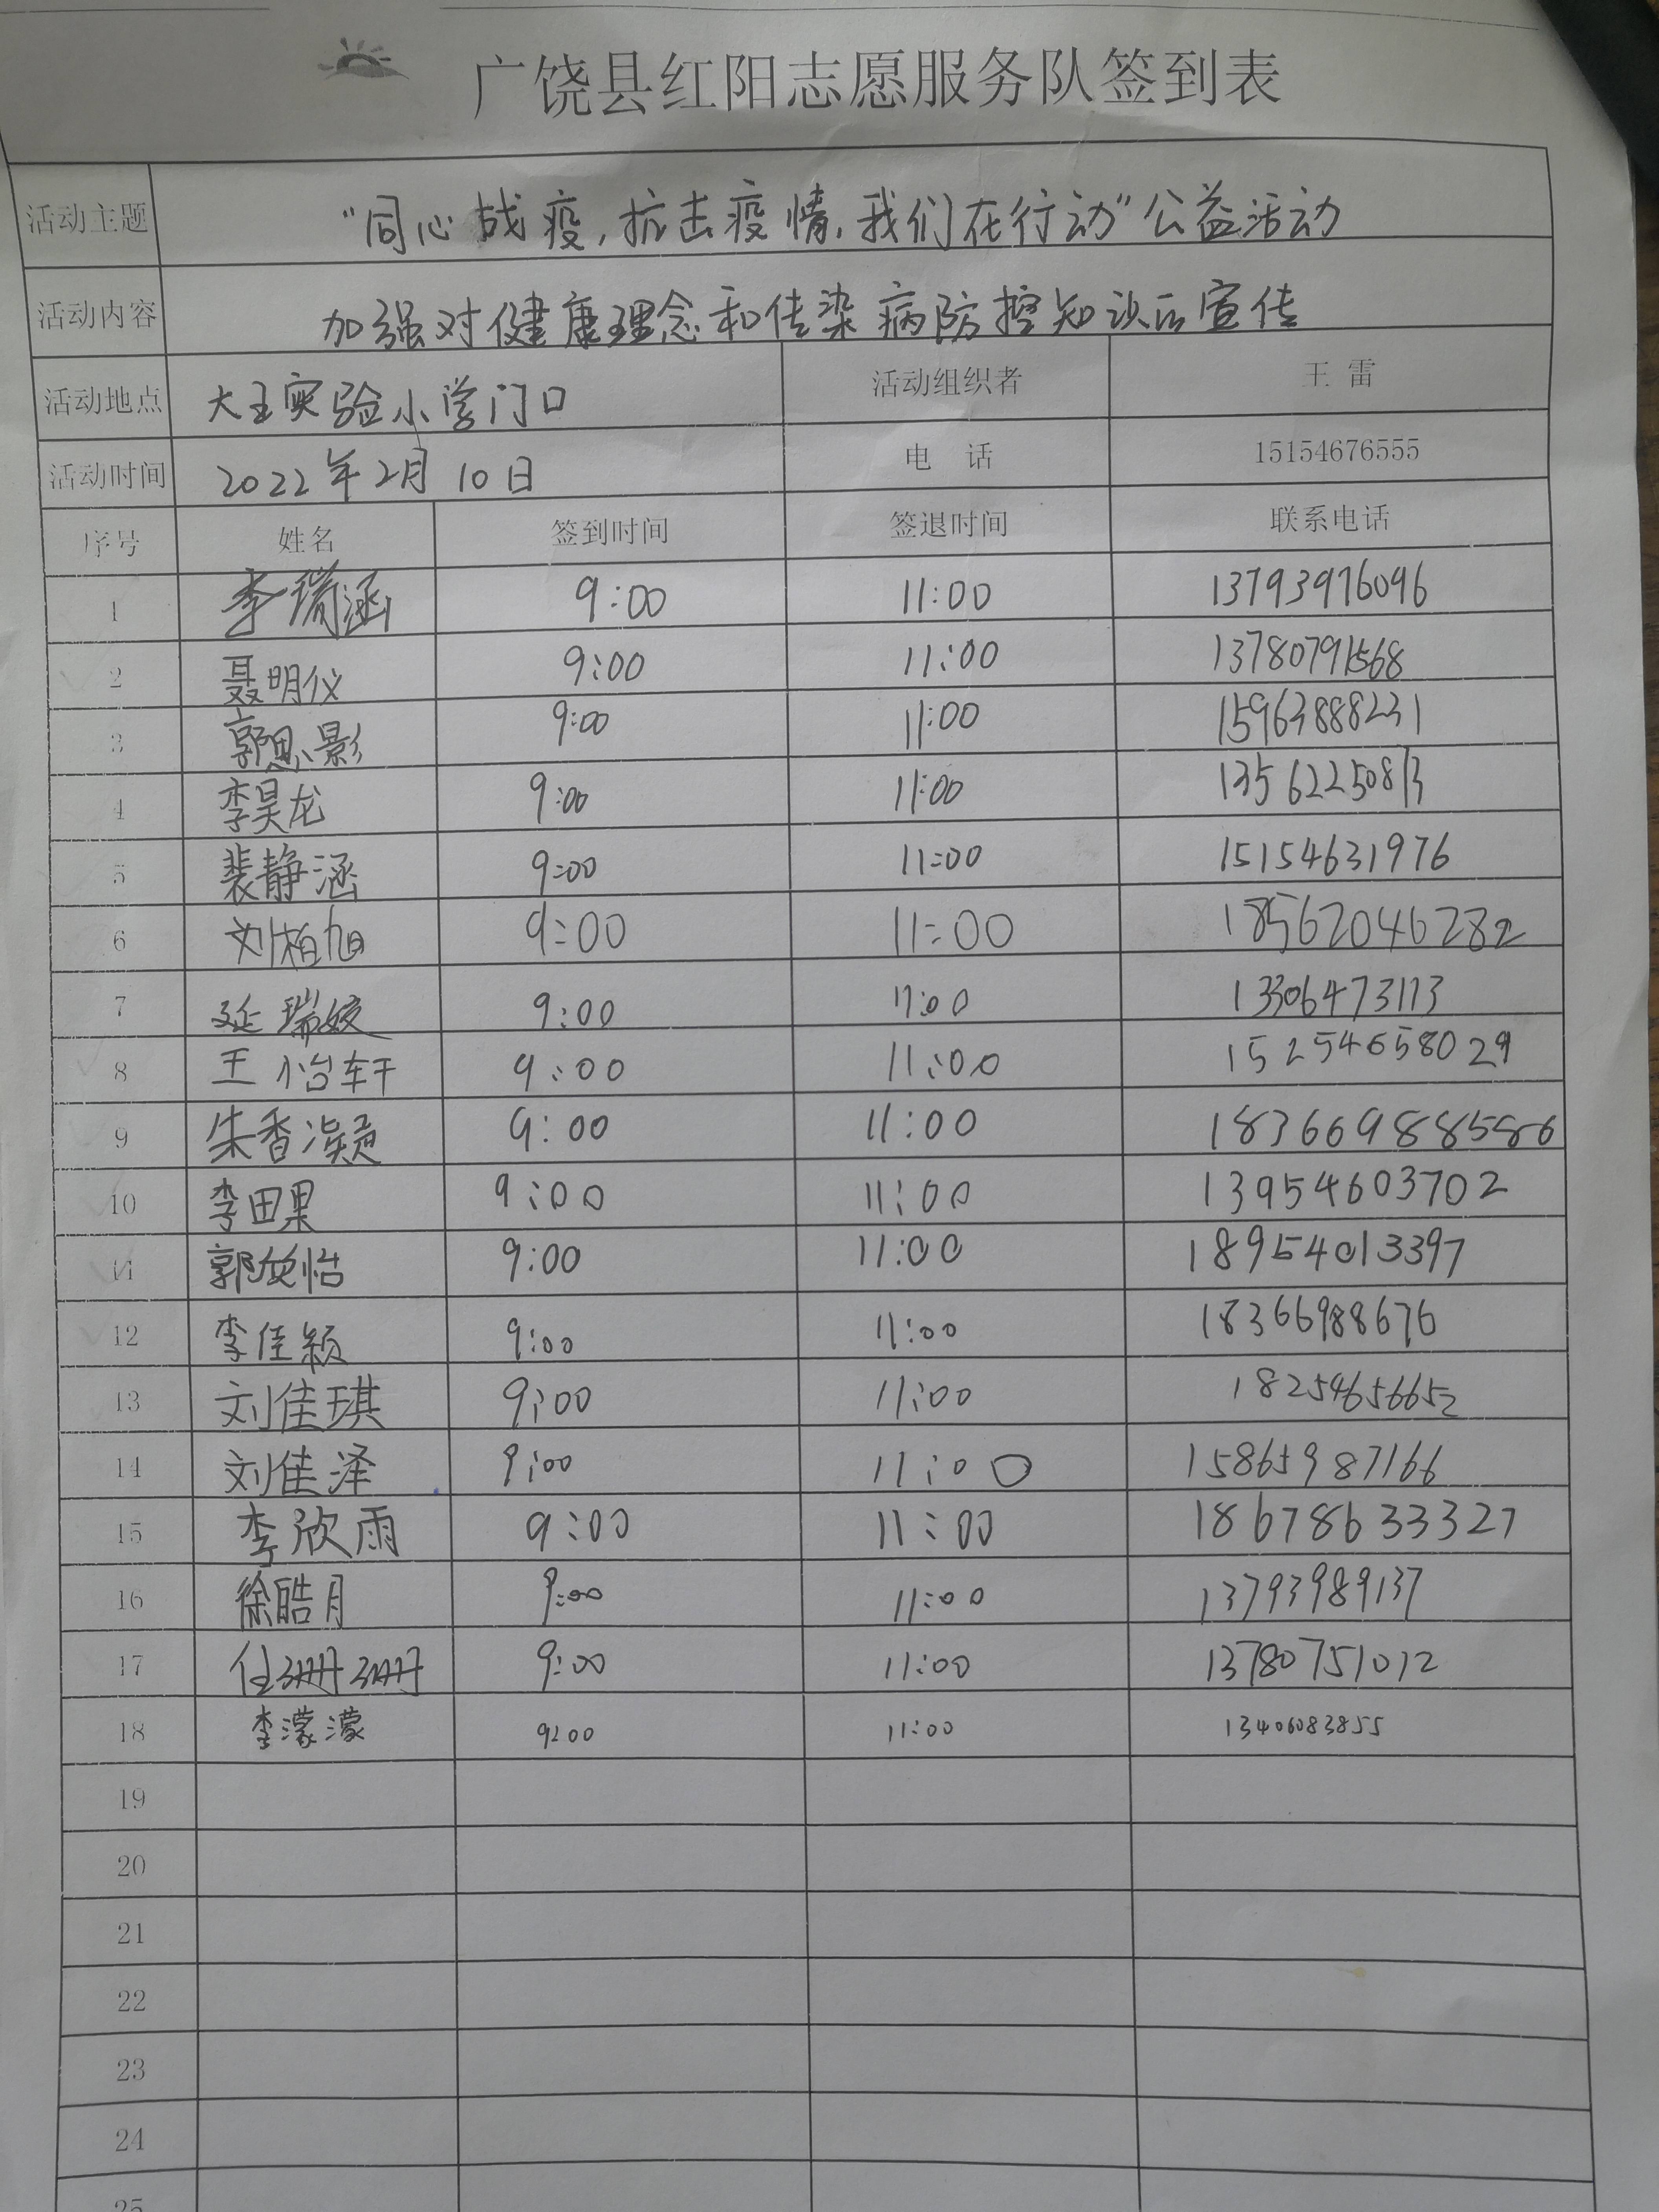 广饶县红阳志愿服务队签到表
活动主题 “同心战疫,抗击疫情,我们在行动”公益活动
活动内容 加强对健康理念和传染病防控知识的宣传
活动地点 大王实验小学门口 活动组织者 王雷
活动时间 2022年2月10日 电 话 15154676555
序号 姓名 签到时间 签退时间 联系电话
1 李瑞涵 9:00 11:00 13793976096
2 聂明仪 9:00 11:00 13780791568
3 郭思影 9:00 11:00 15963888231
4 李昊龙 9:00 11:00 13562250813
5 裴静涵 9:00 11:00 15154631976
6 刘柏旭 9:00 11:00 18562046282
7 延瑞姣 9:00 11:00 13306473113
8 王怡轩 9:00 11:00 15254658029
9 朱香凝 9:00 11:00 18366988586
10 李田果 9:00 11:00 13954603702
11 郭放怡 9:00 11:00 18954013397
12 李佳颖 9:00 11:00 18366988676
13 刘佳琪 9:00 11:00 18254656652
14 刘佳泽 9:00 11:00 15865987166
15 李欣雨 9:00 11:00 18678633327
16 徐皓月 9:00 11:00 13793989137
17 任珊珊 9:00 11:00 13780751012
18 李濛濛 9:00 11:00 13406083855
19
20
21
22
23
24
25